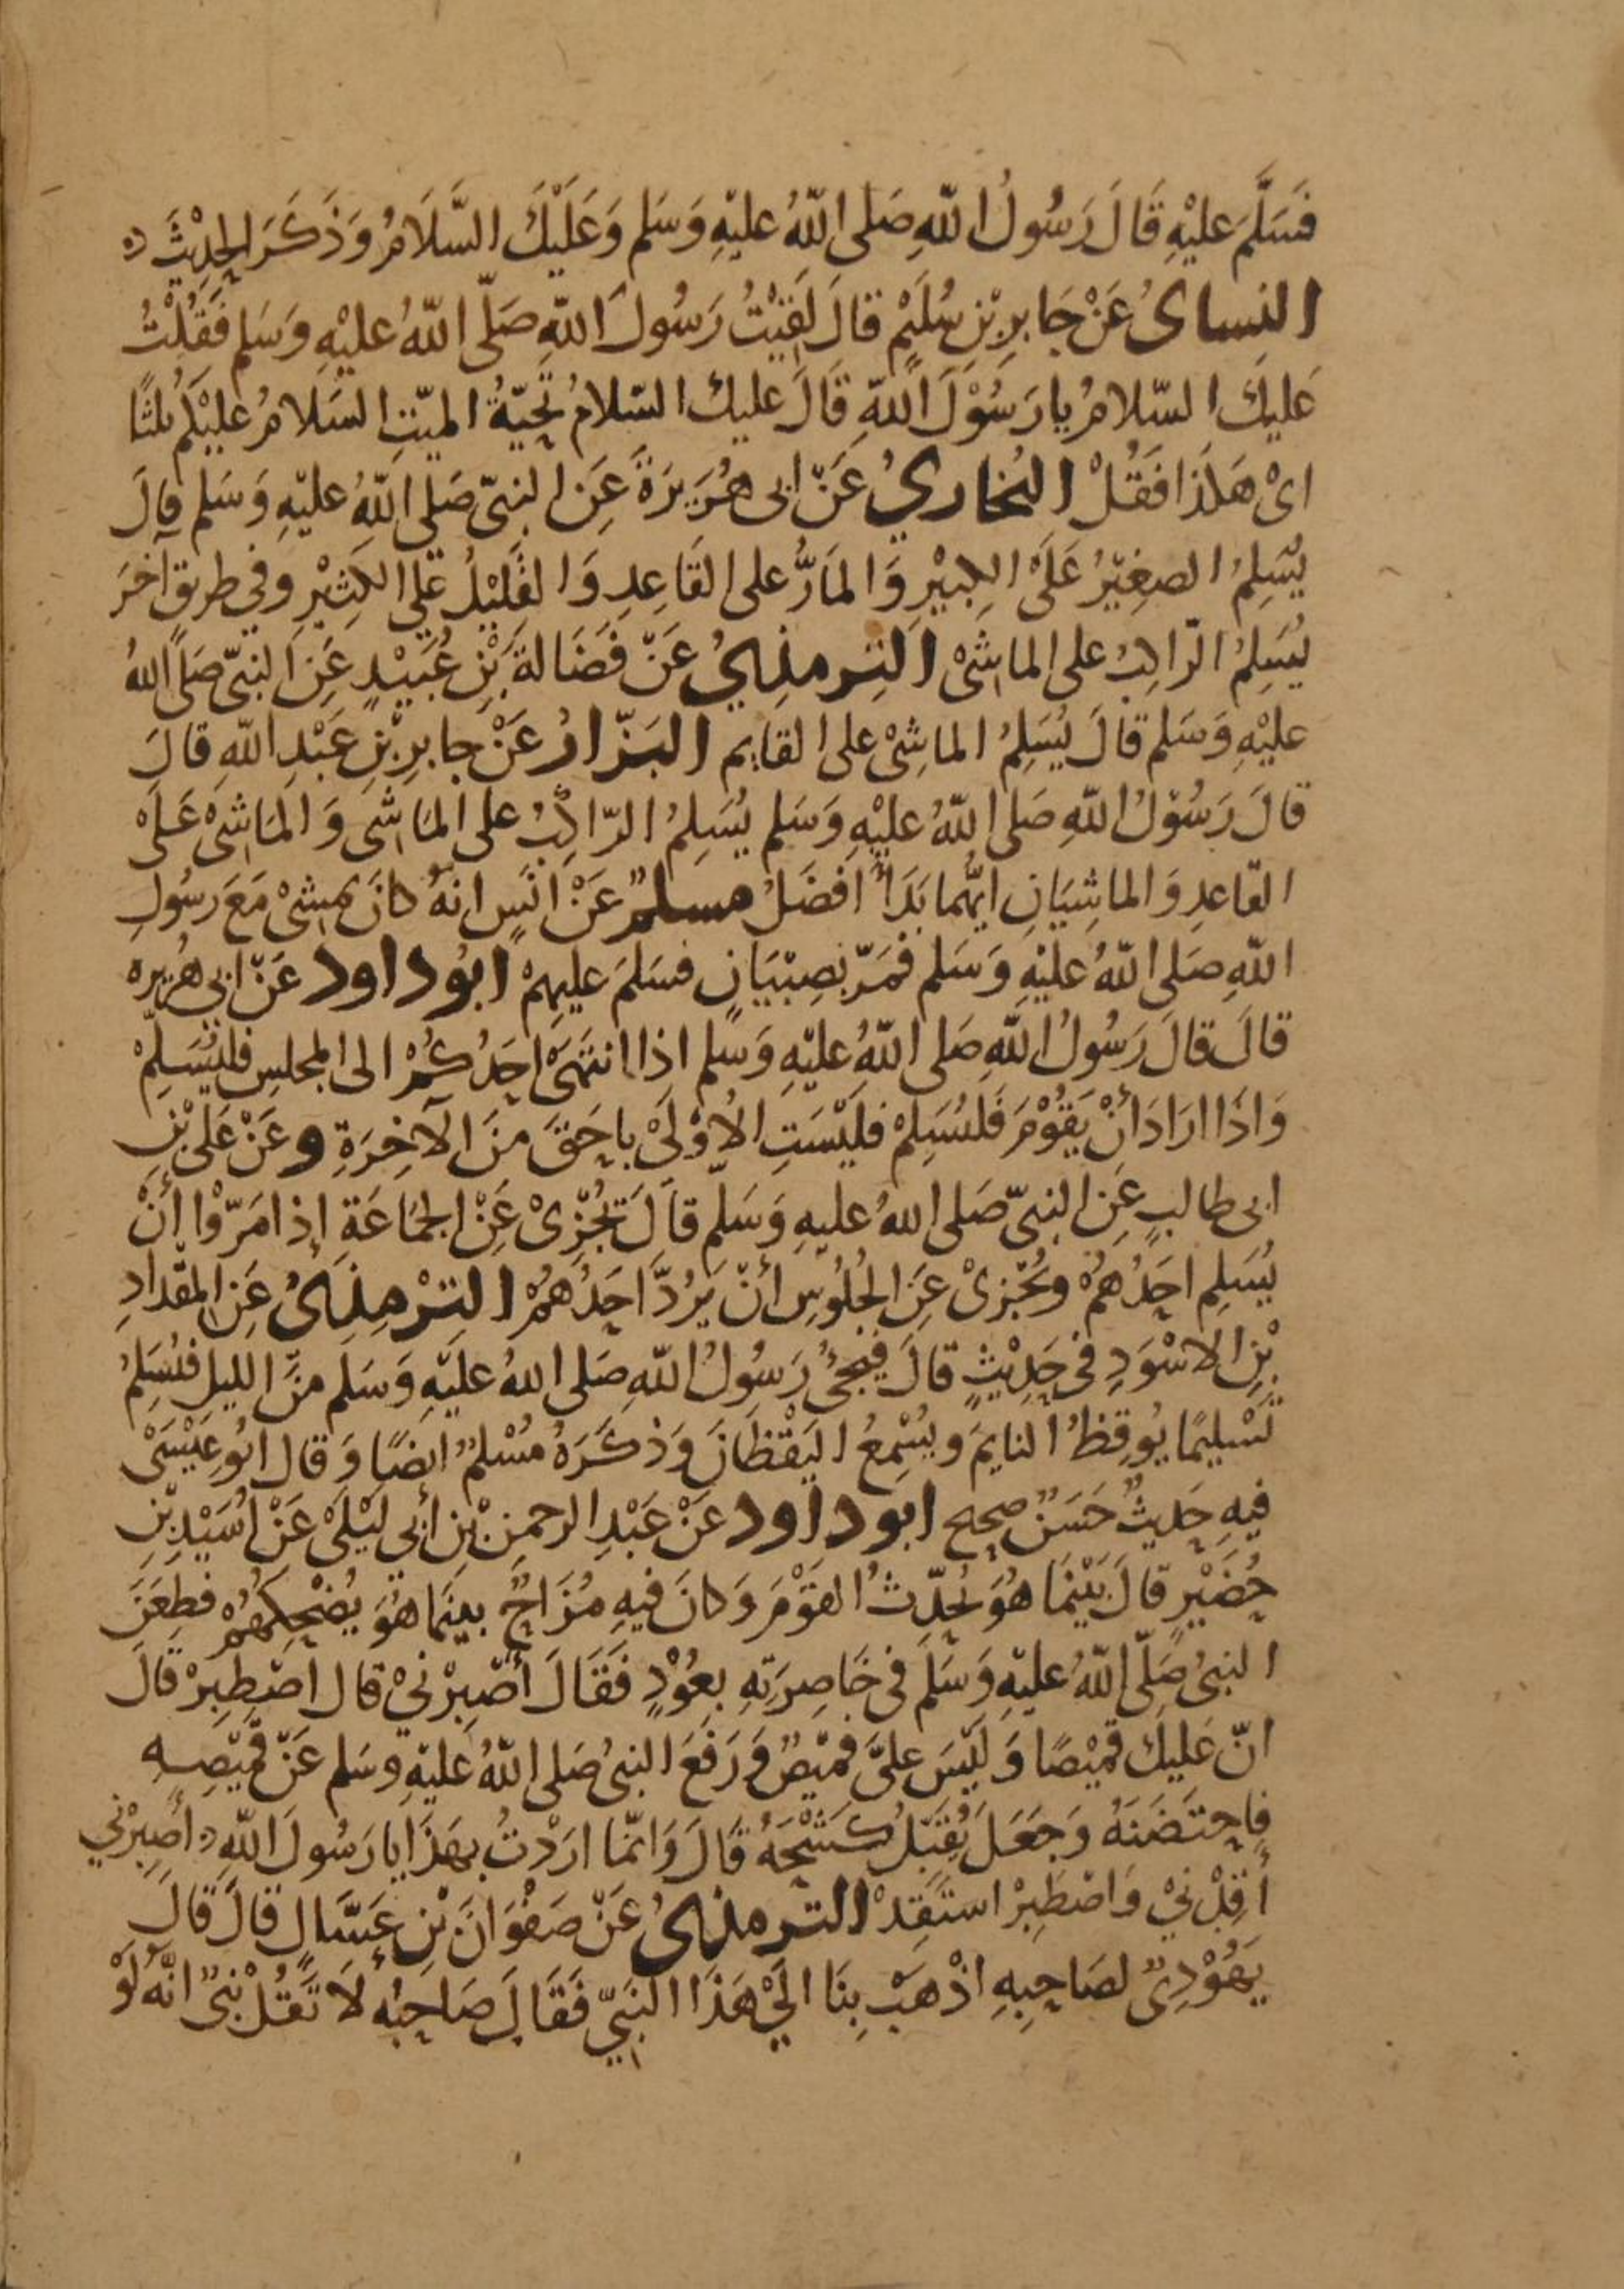 فَسَلَّمَ عليْهِ قَالَ رَسُولُ اللّهِ صَلى اللّهُ عليْهِ وَسَلم وَعَلَيْكَ السَّلَامُ وَذَكَرَ الحِديْثَ
النِساىُ عَنْ جَابِرِ بْنِ سُلَيْمٍ قالَ لَقِيْتُ رَسُولَ اللّهِ صَلّى اللّهُ عليْهِ وَسَلم فَقُلْتُ
عَليكَ السّلامُ يا رَسُوْلَ اللّهِ قَالَ عليكَ السّلامُ تَحِيّةُ الميّتِ السَلامُ عليْكُم ثلثًا
اىْ هَكَذَا فَقُلْ البُخاريُ عَنْ ابى هُرَيرَةَ عَنِ النبىّ صَلى اللّهُ عليْهِ وَسَلم قالَ
يُسَلِمُ الصغِيْرُ عَلَىْ الكِبيْرِ وَالمَارُّ على القَاعِدِ وَالقَليْلُ عَلى الكثِيْرِ وفي طريقٍ آخرَ
يُسَلِمُ الرّاكِبُ على الماشىْ التِرمذِيُ عَنْ فَضَالةَ بْنِ عُبَيْدٍ عَنِ النبىّ صَلى اللهُ
عليْهِ وَسَلم قالَ يُسَلِمُ الماشِىْ على القايم البَزّارُ عَنْ جابِرِ بْنِ عَبْدِ اللّهِ قالَ
قالَ رَسُوْلُ اللّهِ صَلى اللّهُ عليْهِ وَسَلم يُسَلِمُ الرّاكِبُ على المَاشى وَالمَاشىْ عَلىْ
القاعدِ وَالماشِيَانِ ايّهما بَدَأَ افضَلُ مسلمٌ عَنْ انَسٍ انّهُ كانَ يمشىْ مَعَ رسُولِ
اللّهِ صَلى اللّهُ عليْهِ وَسَلم فمَرّ بصِبْيَانٍ فسَلمَ عليهِمْ ابوُ داود عَنْ ابى هُريره
قالَ قالَ رَسُولُ اللّهِ صَلى اللّهُ عليْهِ وَسَلم اذا انتَهَىْ احَدُكُمْ الى المجلسِ فليُسَلِّمْ
وَاذَا ارَادَ أنْ يَقُوْمَ فَلْيُسَلِمْ فلَيْسَتِ الأُوْلَىْ باحَقّ منَ الآخِرَةِ وعَنْ عَلى بْنِ
ابى طالبٍ عَنِ النبىّ صَلى اللهُ عليهِ وَسَلم قالَ تُجْزِىْ عَنِ الجمَاعَةِ إذا مَرّوْا أنْ
يُسَلِم احَدُهُمْ وتُجْزىْ عَنِ الجُلُوْسِ أنْ يَرُدَّ احَدُهُمْ التِرْمذِىُ عَنِ المقْدادِ
بْنِ الاسْوَدِ فى حَدِيْثٍ قالَ فيَجِىُٔ رَسُولُ اللّهِ صَلى اللهُ عليْهِ وَسَلم منَ الليلِ فيُسَلِمُ
تَسْليمًا يُوقِظُ النايمَ ويُسْمِعُ اليَقْظَانَ وَذَكَرَهُ مُسْلمٌ ايضًا وَقال ابُو عيْسَىْ
فيهِ حَديثٌ حَسَنٌ صحيح ابو داود عَنْ عَبْدِ الرحمنِ بْنِ أبي ليْلىْ عَنْ اُسَيْدِ بْنِ
حُضَيْرٍ قالَ بَيْنَما هُوَ يُحدِّثُ القوْمَ وَكانَ فيهِ مُزَاحٌ بينَما هُوَ يُضحِكهُمْ فطعَنَ
النبىُ صَلّى اللّهُ عليْهِ وَسَلم فى خَاصِرَتهِ بِعُوْدٍ فَقَالَ أصْبِرْنىْ قال اصْطبِرْ قالَ
انّ عَليكَ قمِيْصًا وَليْسَ علىَّ قمِيْصٌ وَرَفَعَ النبىُ صَلى اللّهُ عَليْهِ وسَلم عَنْ قمِيْصِهِ
فاحتَضَنَهُ وَجَعَلَ يُقَبّلُ كَشْحَهُ قَالَ وَانّما ارَدْتُ بهَذَا يا رَسُولَ اللّهِ أصبِرْني
أقِدْنيْ وَاصْطَبِرْ استَقِدْ الترمذىُ عَنْ صَفْوَانَ بْنِ عَسَّالٍ قالَ قالَ
يَهُوْدِىٌ لصَاحِبِهِ اذْهَبْ بِنَا الَىْ هَذَا النّبيِّ فَقَالَ صَاحِبُه لَا تَقُلْ نبىٌ انّهُ لَوْ